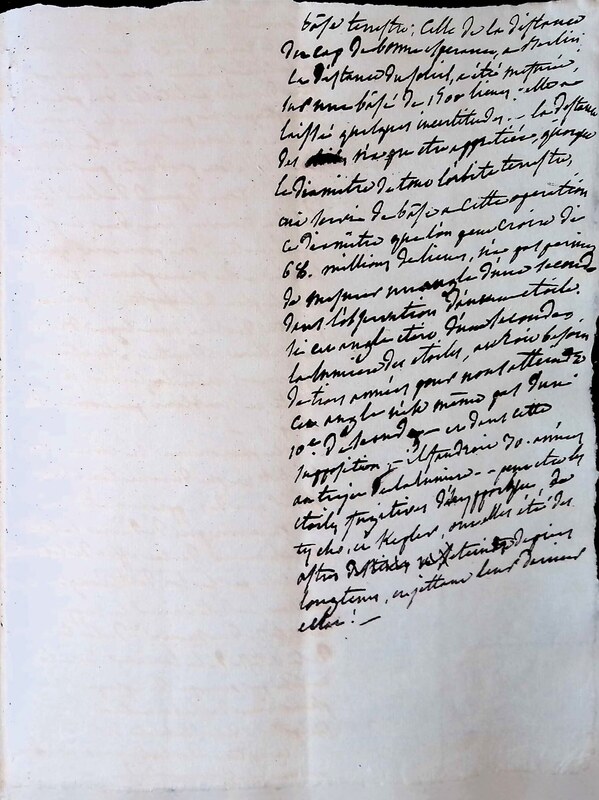 bâse terrestre; Celle de la distance
du cap de bonne esperance, a Berlin.
La distance du soleil, a été mesurée,
sur une bâse de 1500 lieues. elle a
laissé quelques incertitudes. — la distance
des n'a pu etre appretiée, quoique
le diamètre de tout l'orbite terrestre,
ait servi de bâse a cette operation
ce diamètre que l'on peut croire de
68. millions de lieues, n'a pas permis
de mesurer un angle d'une seconde
dans l'observation d'aucune etoile.
si cet angle etoit d'une seconde,
la lumiere des etoiles, auroit besoin
de trois années pour nous atteindre
cet angle n'est même pas d'une
10.e de seconde — et dans cette
supposition, — il faudroit 30. années
au trajet de la lumiere. — peut etre les
etoiles fugitives d'hypparque, de
tycho, et Kepler, ont elles été des
astres eteints depuis
longtems, en jettant leur dernier
eclat! —